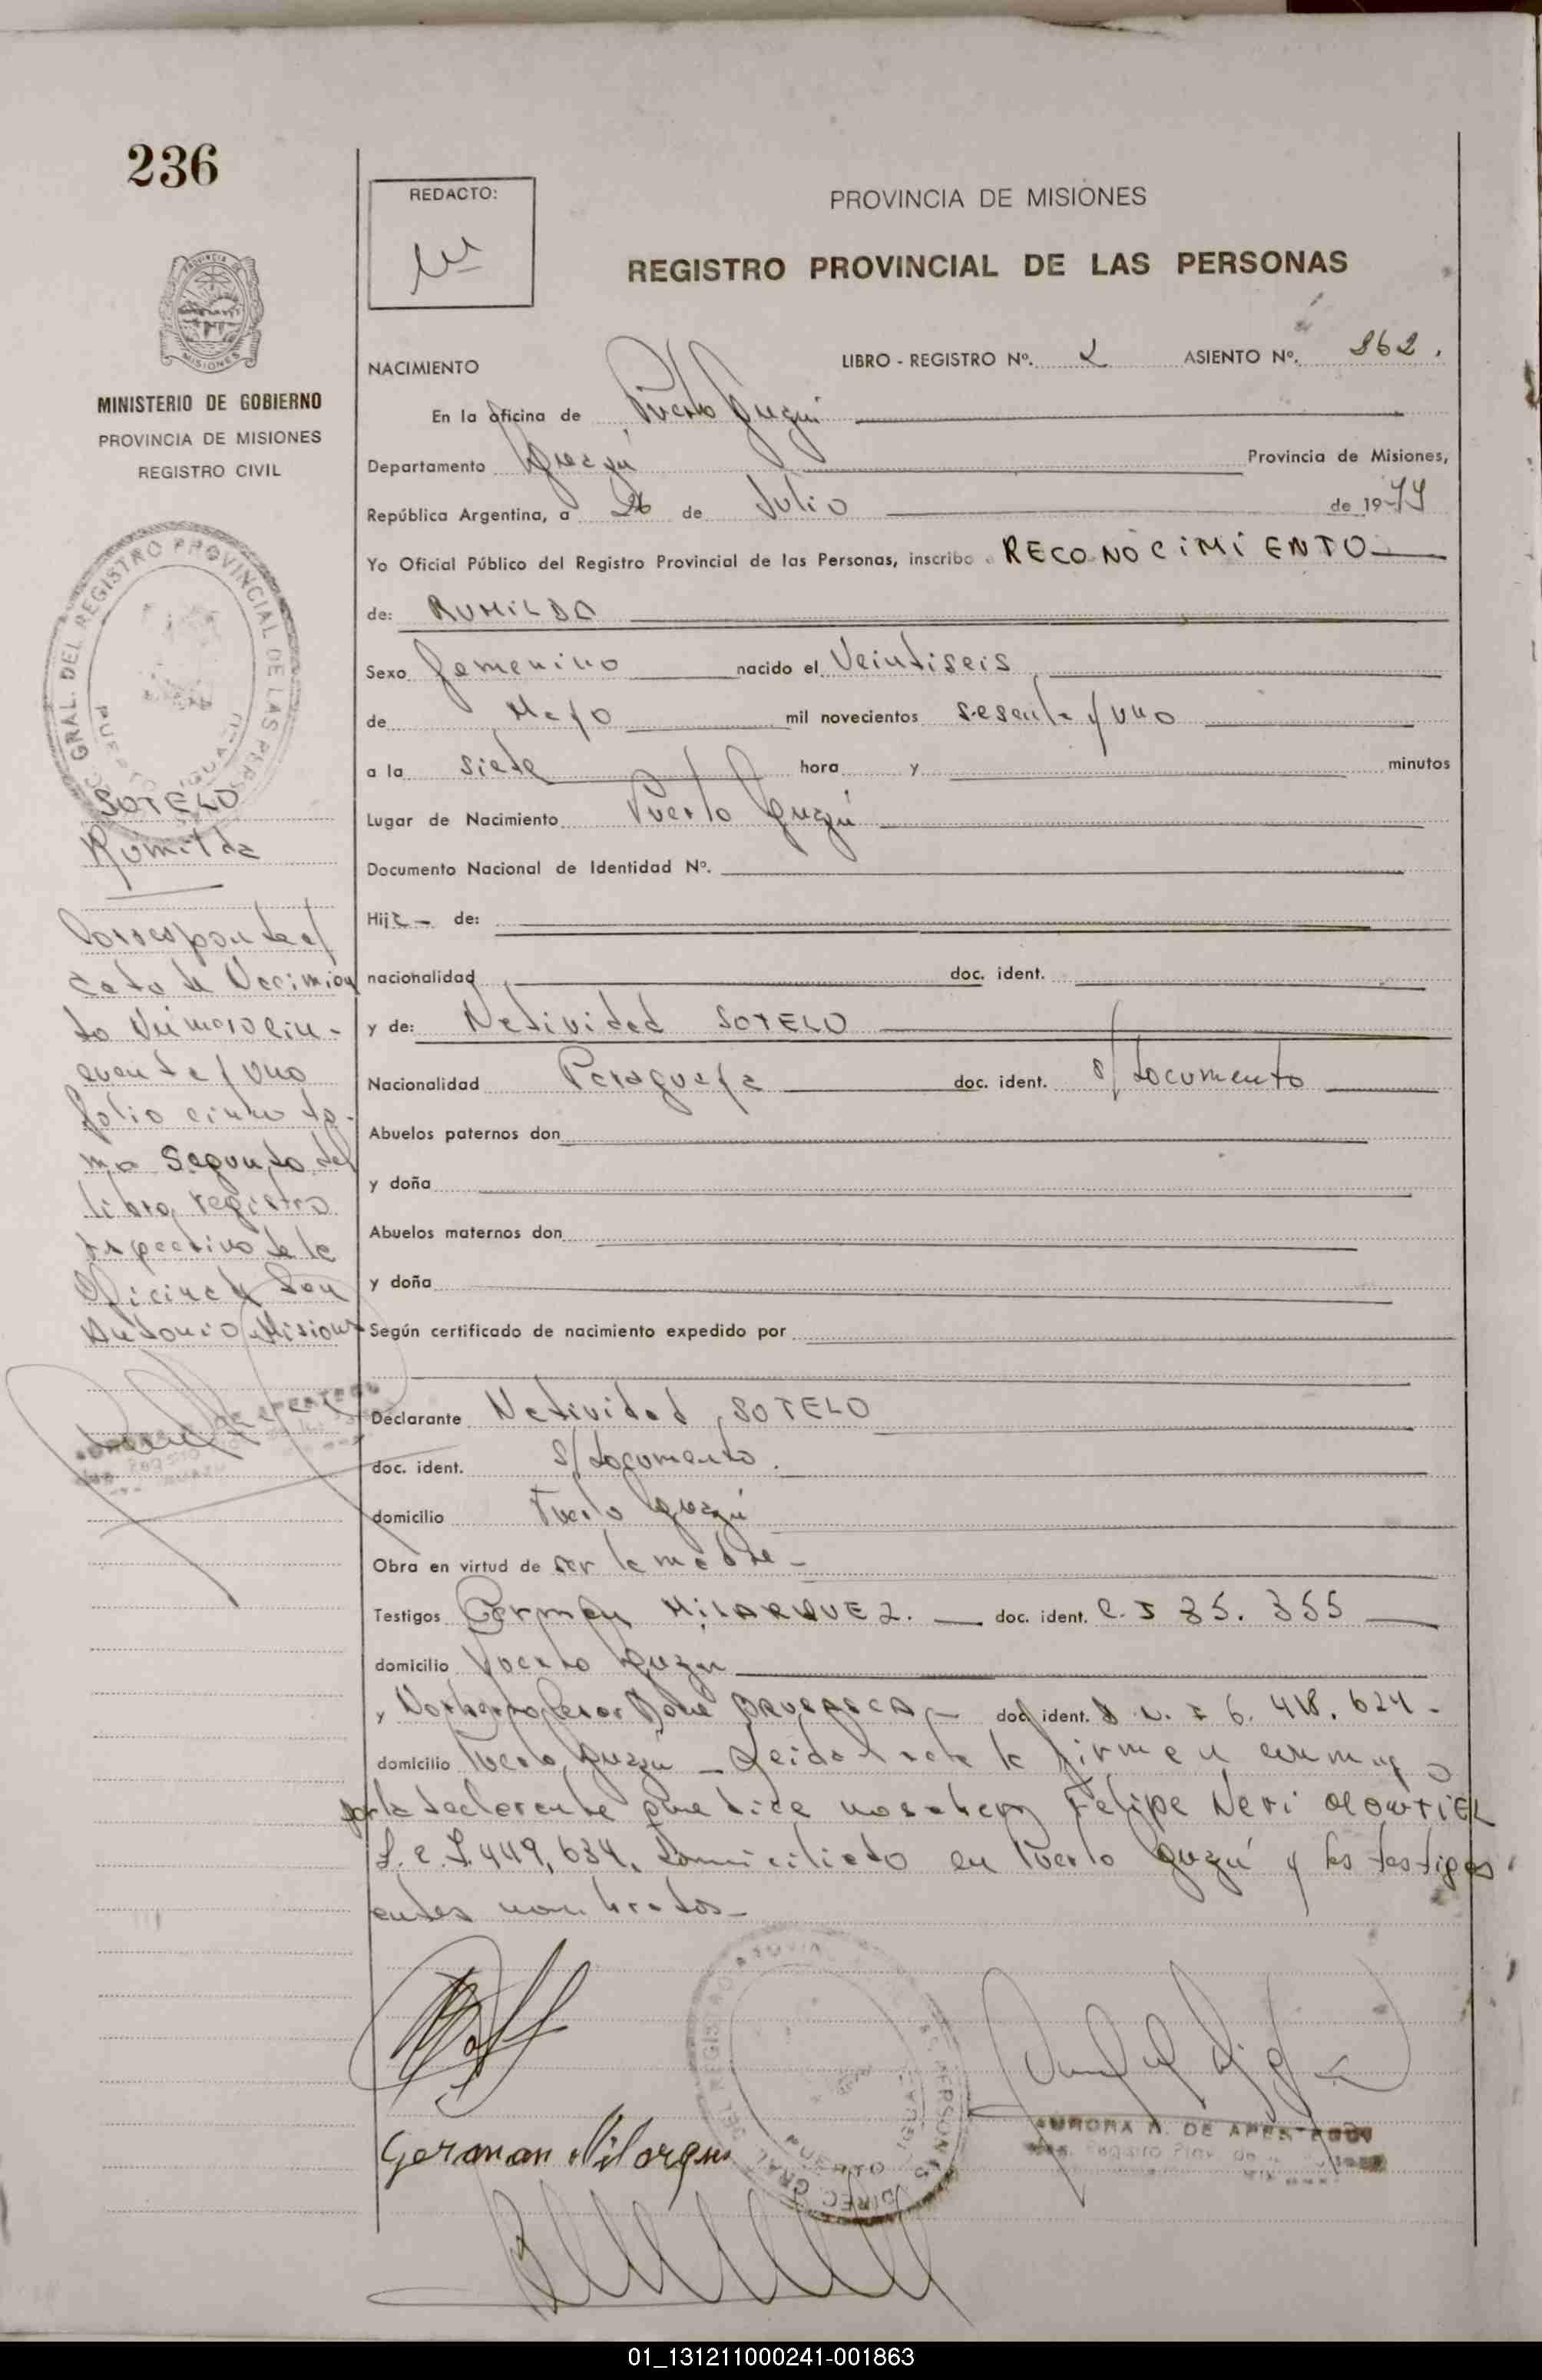 236
REDACTO:
PROVINCIA DE MISIONES
REGISTRO PROVINCIAL DE LAS PERSONAS
MINISTERIO DE GOBIERNO
PROVINCIA DE MISIONES
REGISTRO CIVIL
NACIMIENTO LIBRO - REGISTRO Nº. 2 ASIENTO Nº. 262.
En la oficina de Puerto Iguazú
Departamento Iguazú Provincia de Misiones,
República Argentina, a 26 de Julio de 1977
Yo Oficial Público del Registro Provincial de las Personas, inscribo RECONOCIMIENTO
de: RUMILDA
Sexo femenino nacido el Veintiseis
de Mayo mil novecientos sesenta y uno
a la siete hora y minutos
Lugar de Nacimiento Puerto Iguazú
Documento Nacional de Identidad Nº.
Hija de:
nacionalidad doc. ident.
y de: Natividad SOTELO
Nacionalidad Paraguaya doc. ident. s/documento
Abuelos paternos don
y doña
Abuelos maternos don
y doña
Según certificado de nacimiento expedido por
Declarante Natividad SOTELO
doc. ident. s/documento.
domicilio Puerto Iguazú
Obra en virtud de ser la madre -
Testigos German MILARQUEZ. doc. ident. C.I 35.355
domicilio Puerto Iguazú
y doc. ident. D.N.I 6.418.624-
domicilio Puerto Iguazú - Leida el acta la firman conmigo
por la declarante que dice no saber Felipe Neri MONTIEL
domiciliado en Puerto Iguazú y los testigos
antes nombrados-
SOTELO
Rumilda
Corresponde al
acta de Nacimien
to Número cin-
cuenta y uno
folio cinco to-
mo Segundo del
libro registro
respectivo de la
Oficina de San
Antonio Misiones
DIREC. GRAL. DEL REGISTRO PROVINCIAL DE LAS PERSONAS
PUERTO IGUAZU
German Milarques
AURORA
01_131211000241-001863